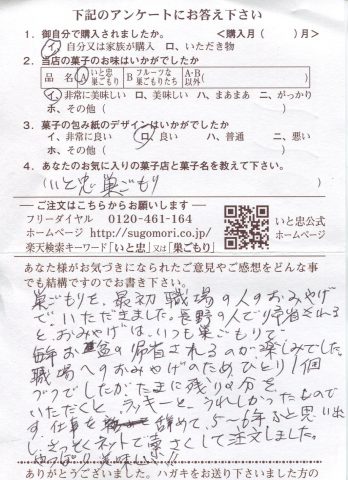 下記のアンケートにお答え下さい
1. 御自分で購入されましたか。 <購入月( )月>
イ、自分又は家族が購入 ロ、いただき物
2. 当店の菓子のお味はいかがでしたか
品 名 A いと忠巣ごもり B フルーツな巣ごもりたち A・B以外( )
イ、非常に美味しい ロ、美味しい ハ、まあまあ ニ、がっかり
ホ、その他( )
3. 菓子の包み紙のデザインはいかがでしたか
イ、非常に良い ロ、良い ハ、普通 ニ、悪い
ホ、その他( )
4. あなたのお気に入りの菓子店と菓子名を教えて下さい。
(いと忠 巣ごもり )
―ご注文はこちらからお願いします―
フリーダイヤル 0120-461-164
ホームページ http://sugomori.co.jp/
楽天検索キーワード「いと忠」又は「巣ごもり」
いと忠公式
ホームページ
あなた様がお気づきになられたご意見やご感想をどんな事
でも結構ですのでお書き下さい。
巣ごもりを、最初職場の人のおみやげ
でいただきました。長野の人で帰省される
と、おみやげは、いつも巣ごもりで、
毎年お盆の帰省されるのが楽しみでした。
職場へのおみやげのためひとり1個
づつでしたが、たまに残り分を
いただくと、ラッキーと、うれしかったもので
す。仕事を 辞めて、5~6年、ふと思い出
し、さっそくネットで検さくして注文しました。
やっぱり美味しい!!
ありがとうございました。ハガキをお送り下さいました方の